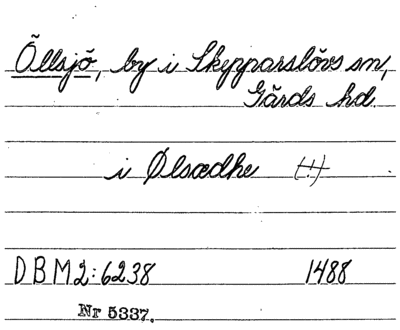 Öllsjö, by i Skepparslövs sn,
Gärds hd.
i Ølsædhe (!)
DBM2:6238 1488
Nr 5337.